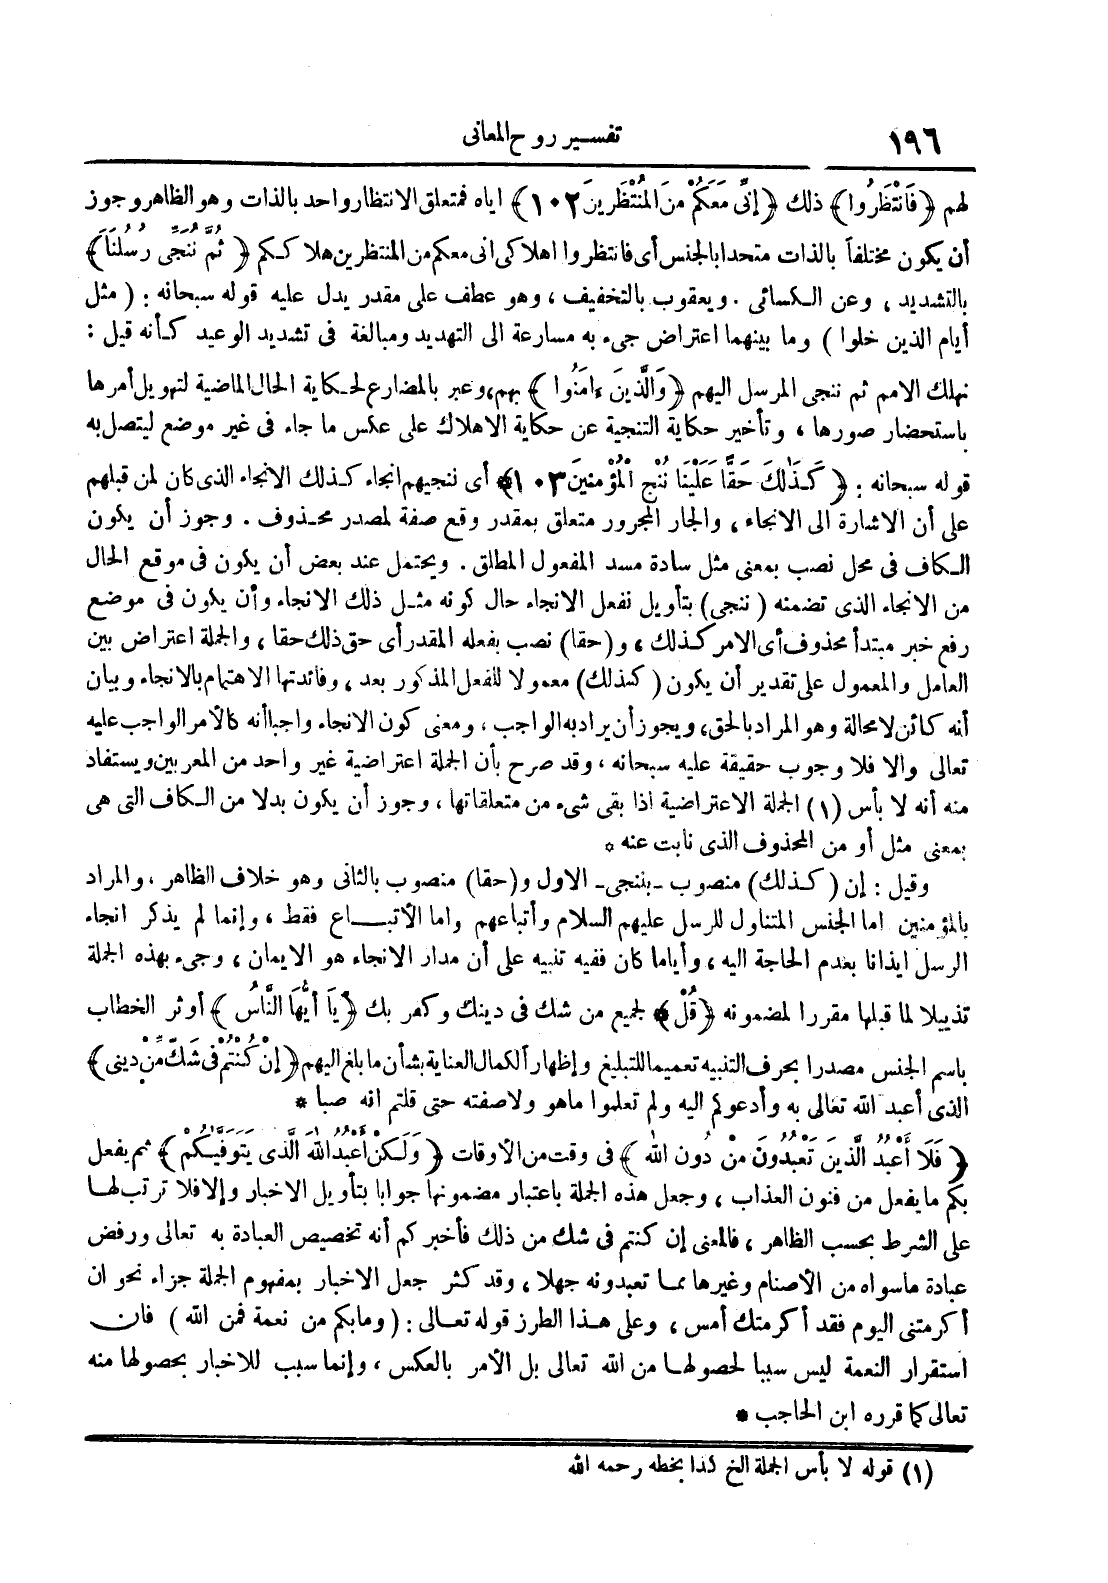 ١٩٦
تفسير روح المعانى
لهم ﴿فَانْتَظِرُوا﴾ ذلك ﴿إِنِّى مَعَكُمْ مِنَ المُنْتَظِرِينَ ١٠٢﴾ اياه فمتعلق الانتظار واحد بالذات وهو الظاهر وجوز
أن يكون مختلفاً بالذات متحدا بالجنس أى فانتظروا اهلاكى انى معكم من المنتظرين هلاككم ﴿ثُمَّ نُنَجِّى رُسُلَنَا﴾
بالتشديد ، وعن الكسائى . ويعقوب بالتخفيف ، وهو عطف على مقدر يدل عليه قوله سبحانه : ( مثل
أيام الذين خلوا ) وما بينهما اعتراض جىء به مسارعة الى التهديد ومبالغة فى تشديد الوعيد كأنه قيل :
نهلك الامم ثم ننجى المرسل اليهم ﴿وَالَّذِينَ ءامَنُوا﴾ بهم، وعبر بالمضارع لحكاية الحال الماضية لتهويل أمرها
باستحضار صورها ، وتأخير حكاية التنجية عن حكاية الاهلاك على عكس ما جاء فى غير موضع ليتصل به
قوله سبحانه : ﴿كَذَلِكَ حَقًّا عَلَيْنَا نُنْجِ الْمُؤْمِنِينَ ١٠٣﴾ أى ننجيهم انجاء كذلك الانجاء الذى كان لمن قبلهم
على أن الاشارة الى الانجاء ، والجار المجرور متعلق بمقدر وقع صفة لمصدر محذوف . وجوز أن يكون
الكاف فى محل نصب بمعنى مثل سادة مسد المفعول المطلق . ويحتمل عند بعض أن يكون فى موقع الحال
من الانجاء الذى تضمنه ( ننجى) بتأويل نفعل الانجاء حال كونه مثل ذلك الانجاء وأن يكون فى موضع
رفع خبر مبتدأ محذوف أى الامر كذلك ، و(حقا) نصب بفعله المقدر أى حق ذلك حقا ، والجملة اعتراض بين
العامل والمعمول على تقدير أن يكون ( كذلك) معمولا للفعل المذكور بعد ، وفائدتها الاهتمام بالانجاء وبيان
أنه كائن لا محالة وهو المراد بالحق، ويجوز أن يراد به الواجب ، ومعنى كون الانجاء واجبا أنه كالأمر الواجب عليه
تعالى والا فلا وجوب حقيقة عليه سبحانه ، وقد صرح بأن الجملة اعتراضية غير واحد من المعربين ويستفاد
منه أنه لا بأس (١) الجملة الاعتراضية اذا بقى شىء من متعلقاتها ، وجوز أن يكون بدلا من الكاف التى هى
بمعنى مثل أو من المحذوف الذى نابت عنه *
وقيل : إن ( كذلك) منصوب ـ بننجى ـ الاول و(حقا) منصوب بالثانى وهو خلاف الظاهر ، والمراد
بالمؤمنين اما الجنس المتناول للرسل عليهم السلام وأتباعهم واما الأتباع فقط ، وإنما لم يذكر انجاء
الرسل ايذانا بعدم الحاجة اليه ، وأياما كان ففيه تنبيه على أن مدار الانجاء هو الايمان ، وجىء بهذه الجملة
تذييلا لما قبلها مقررا لمضمونه ﴿قُلْ﴾ لجميع من شك فى دينك وكفر بك ﴿يَا أَيُّهَا النَّاسُ﴾ أوثر الخطاب
باسم الجنس مصدرا بحرف التنبيه تعميما للتبليغ وإظهارا لكمال العناية بشأن ما بلغ اليهم ﴿إِنْ كُنْتُمْ فِى شَكٍّ مِّنْ دِينِى﴾
الذى أعبد الله تعالى به وأدعوكم اليه ولم تعلموا ماهو ولاصفته حتى قلتم انه صبا *
﴿فَلَا أَعْبُدُ الَّذِينَ تَعْبُدُونَ مِنْ دُونِ اللهِ﴾ فى وقت من الأوقات ﴿وَلَكِنْ أَعْبُدُ اللهَ الَّذِى يَتَوَفَّيكُمْ﴾ ثم يفعل
بكم ما يفعل من فنون العذاب ، وجعل هذه الجملة باعتبار مضمونها جوابا بتأويل الاخبار وإلا فلا ترتب لها
على الشرط بحسب الظاهر ، فالمعنى إن كنتم فى شك من ذلك فأخبركم أنه تخصيص العبادة به تعالى ورفض
عبادة ماسواه من الأصنام وغيرها مما تعبدونه جهلا ، وقد كثر جعل الاخبار بمفهوم الجملة جزاء نحو ان
أكرمتنى اليوم فقد أكرمتك أمس ، وعلى هذا الطرز قوله تعالى : ( ومابكم من نعمة فمن الله ) فان
استقرار النعمة ليس سببا لحصولها من الله تعالى بل الأمر بالعكس ، وإنما سبب للاخبار بحصولها منه
تعالى كما قرره ابن الحاجب *
(١) قوله لا بأس الجملة الخ كذا بخطه رحمه الله